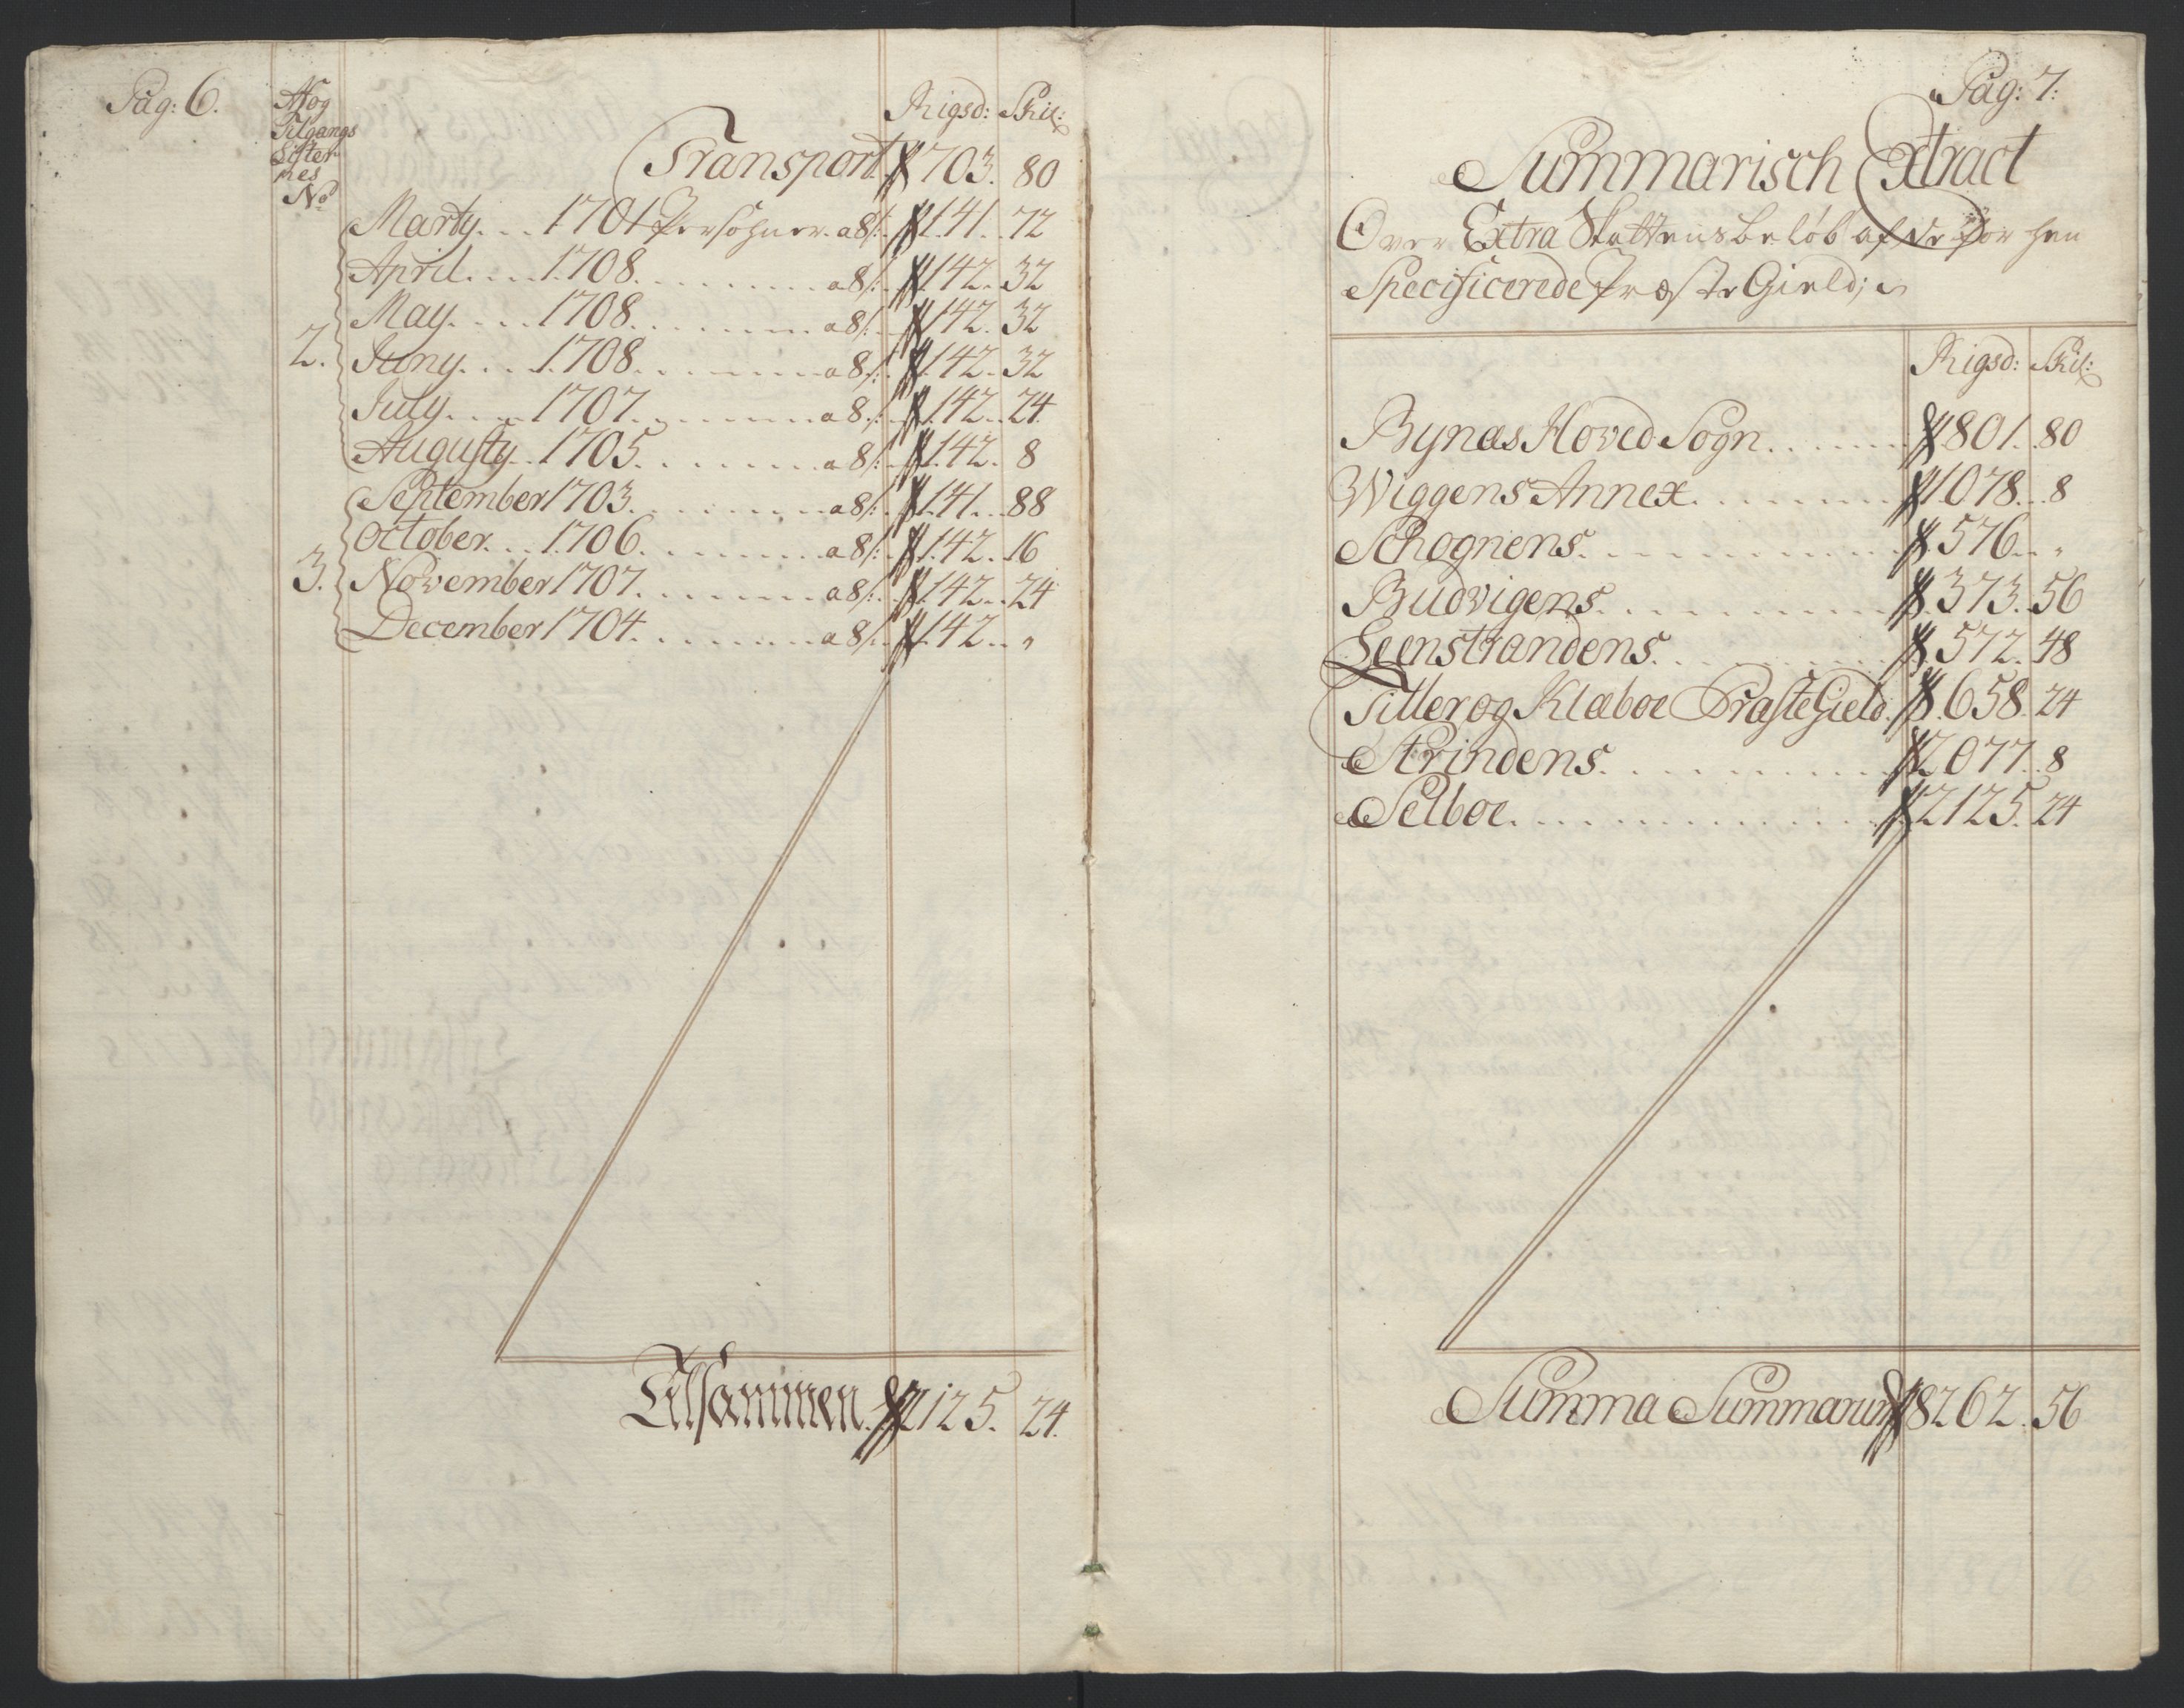 Pag: 6.
Af og
Tilgangs
Lister
nes
No
Rigsd: Skil:
Transport 703. 80
Marty. . . 1701 Persohner. a 8 s: 141. 72
April. . . . 1708. . . . . . . . . a 8 s: 142. 32
May. . . . 1708. . . . . . . . . a 8 s: 142. 32
2. Juny. . . 1708. . . . . . . . . a 8 s: 142. 32
July. . . . 1707. . . . . . . . . a 8 s: 142. 24.
Augusty. . 1705. . . . . . . . . a 8 s: 142. 8
September 1703. . . . . . . . . a 8 s: 141. 88
October. . . 1706. . . . . . . . . a 8 s: 142. 16
3. November 1707. . . . . . . . . a 8 s: 142. 24
December 1704. . . . . . . . . a 8 s: 142. "
Tilsammen. 2125. 24.
Pag: 7:
Summarisch Extract
Over Extra Skattens beløb af de for hen
Specificerede Præste Gield;
Rigsd: Skil:
Bynæs Hoved Sogn. . . . . . 801. 80
Wiggens Annex. . . . . . . 1078. 8
Schognens. . . . . . . . . 576. "
Budvigens. . . . . . . . . 373. 56
Leenstrandens. . . . . . . 572. 48
Tiller og Klæboe Præste Gield. 658. 24
Strindens. . . . . . . . . 2077. 8
Selboe. . . . . . . . . . 2125. 24
Summa Summarum 8262. 56